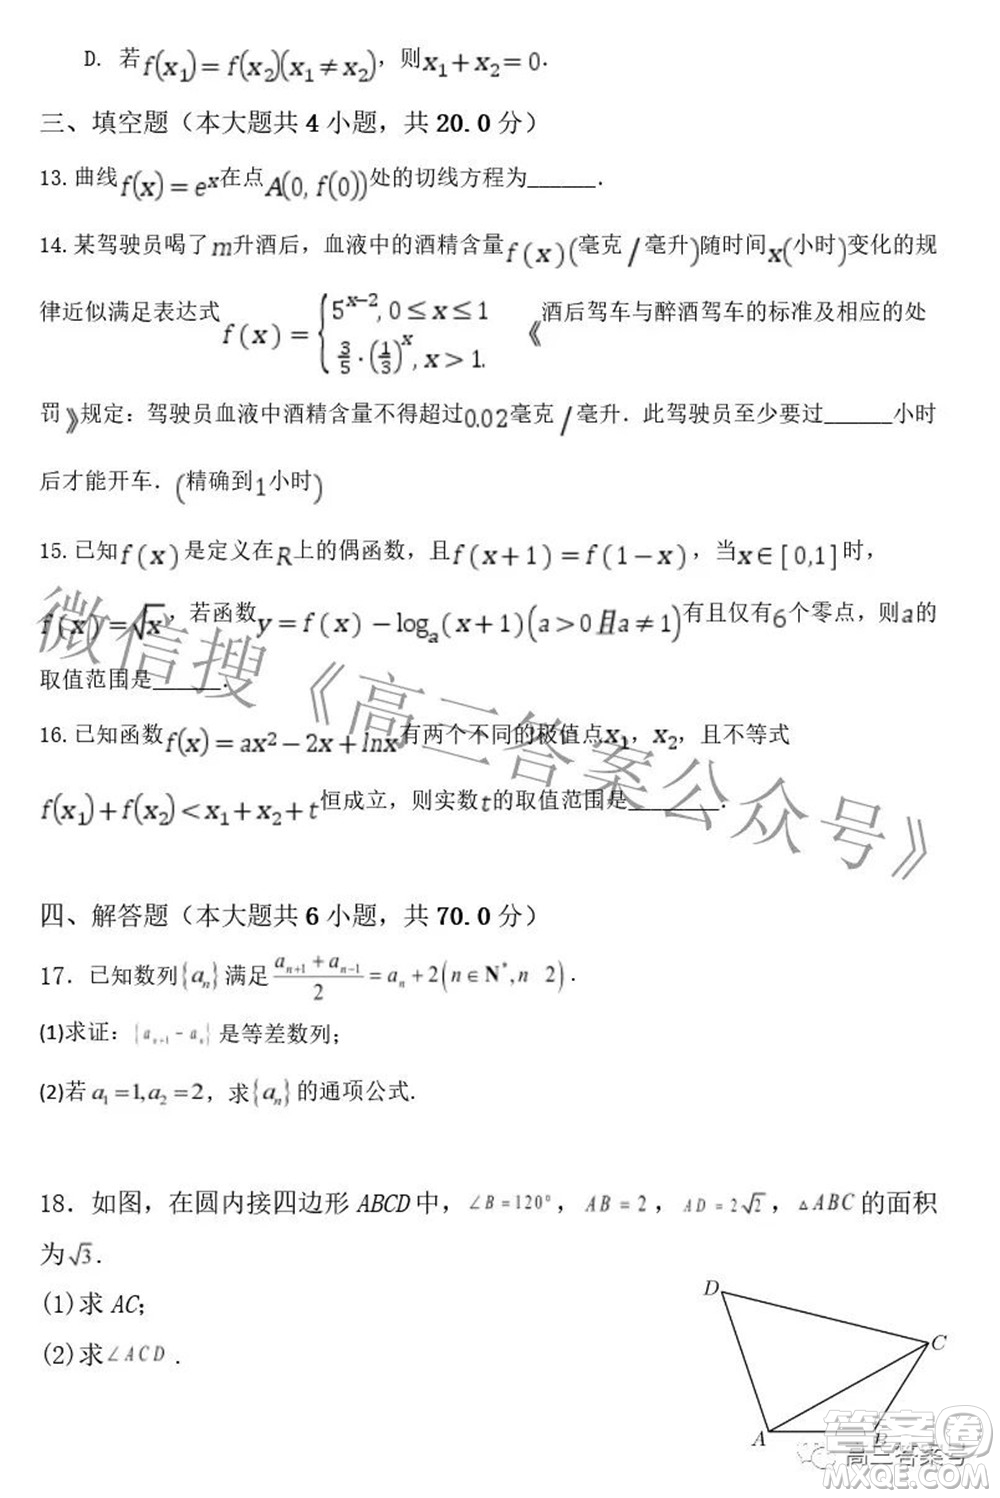 D. 若f(x₁)=f(x₂)(x₁≠x₂)，则x₁+x₂=0.
三、填空题（本大题共 4 小题，共 20.0 分）
13. 曲线f(x)=eˣ在点A(0, f(0))处的切线方程为______.
14. 某驾驶员喝了m升酒后，血液中的酒精含量f(x)(毫克/毫升)随时间x(小时)变化的规
律近似满足表达式f(x)={5^(x-2), 0≤x≤1; 3/5·(1/3)^x, x>1.《酒后驾车与醉酒驾车的标准及相应的处
罚》规定：驾驶员血液中酒精含量不得超过0.02毫克/毫升．此驾驶员至少要过______小时
后才能开车．(精确到1小时)
15. 已知f(x)是定义在R上的偶函数，且f(x+1)=f(1-x)，当x∈[0,1]时，
f(x)=√x，若函数y=f(x)-logₐ(x+1)(a>0且a≠1)有且仅有6个零点，则a的
取值范围是______.
16. 已知函数f(x)=ax²-2x+lnx有两个不同的极值点x₁，x₂，且不等式
f(x₁)+f(x₂)<x₁+x₂+t恒成立，则实数t的取值范围是________.
四、解答题（本大题共 6 小题，共 70.0 分）
17. 已知数列{aₙ}满足(aₙ₊₁+aₙ₋₁)/2=aₙ+2(n∈N*, n 2).
(1)求证：{aₙ₊₁-aₙ}是等差数列；
(2)若a₁=1,a₂=2，求{aₙ}的通项公式.
18. 如图，在圆内接四边形 ABCD 中，∠B=120°，AB=2，AD=2√2，△ABC的面积
为√3.
(1)求 AC；
(2)求∠ACD．
D
C
A
B
微信搜《高三答案公众号》
答案圈
高三答案号
MXQE.COM